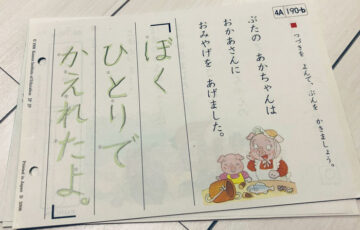 4A 190-b
つづきを よんで、ぶんを かきましょう。
ぶたの あかちゃんは
おかあさんに
おみやげを あげました。
「ぼく
ひとりで
かえれたよ。」
Printed in Japan